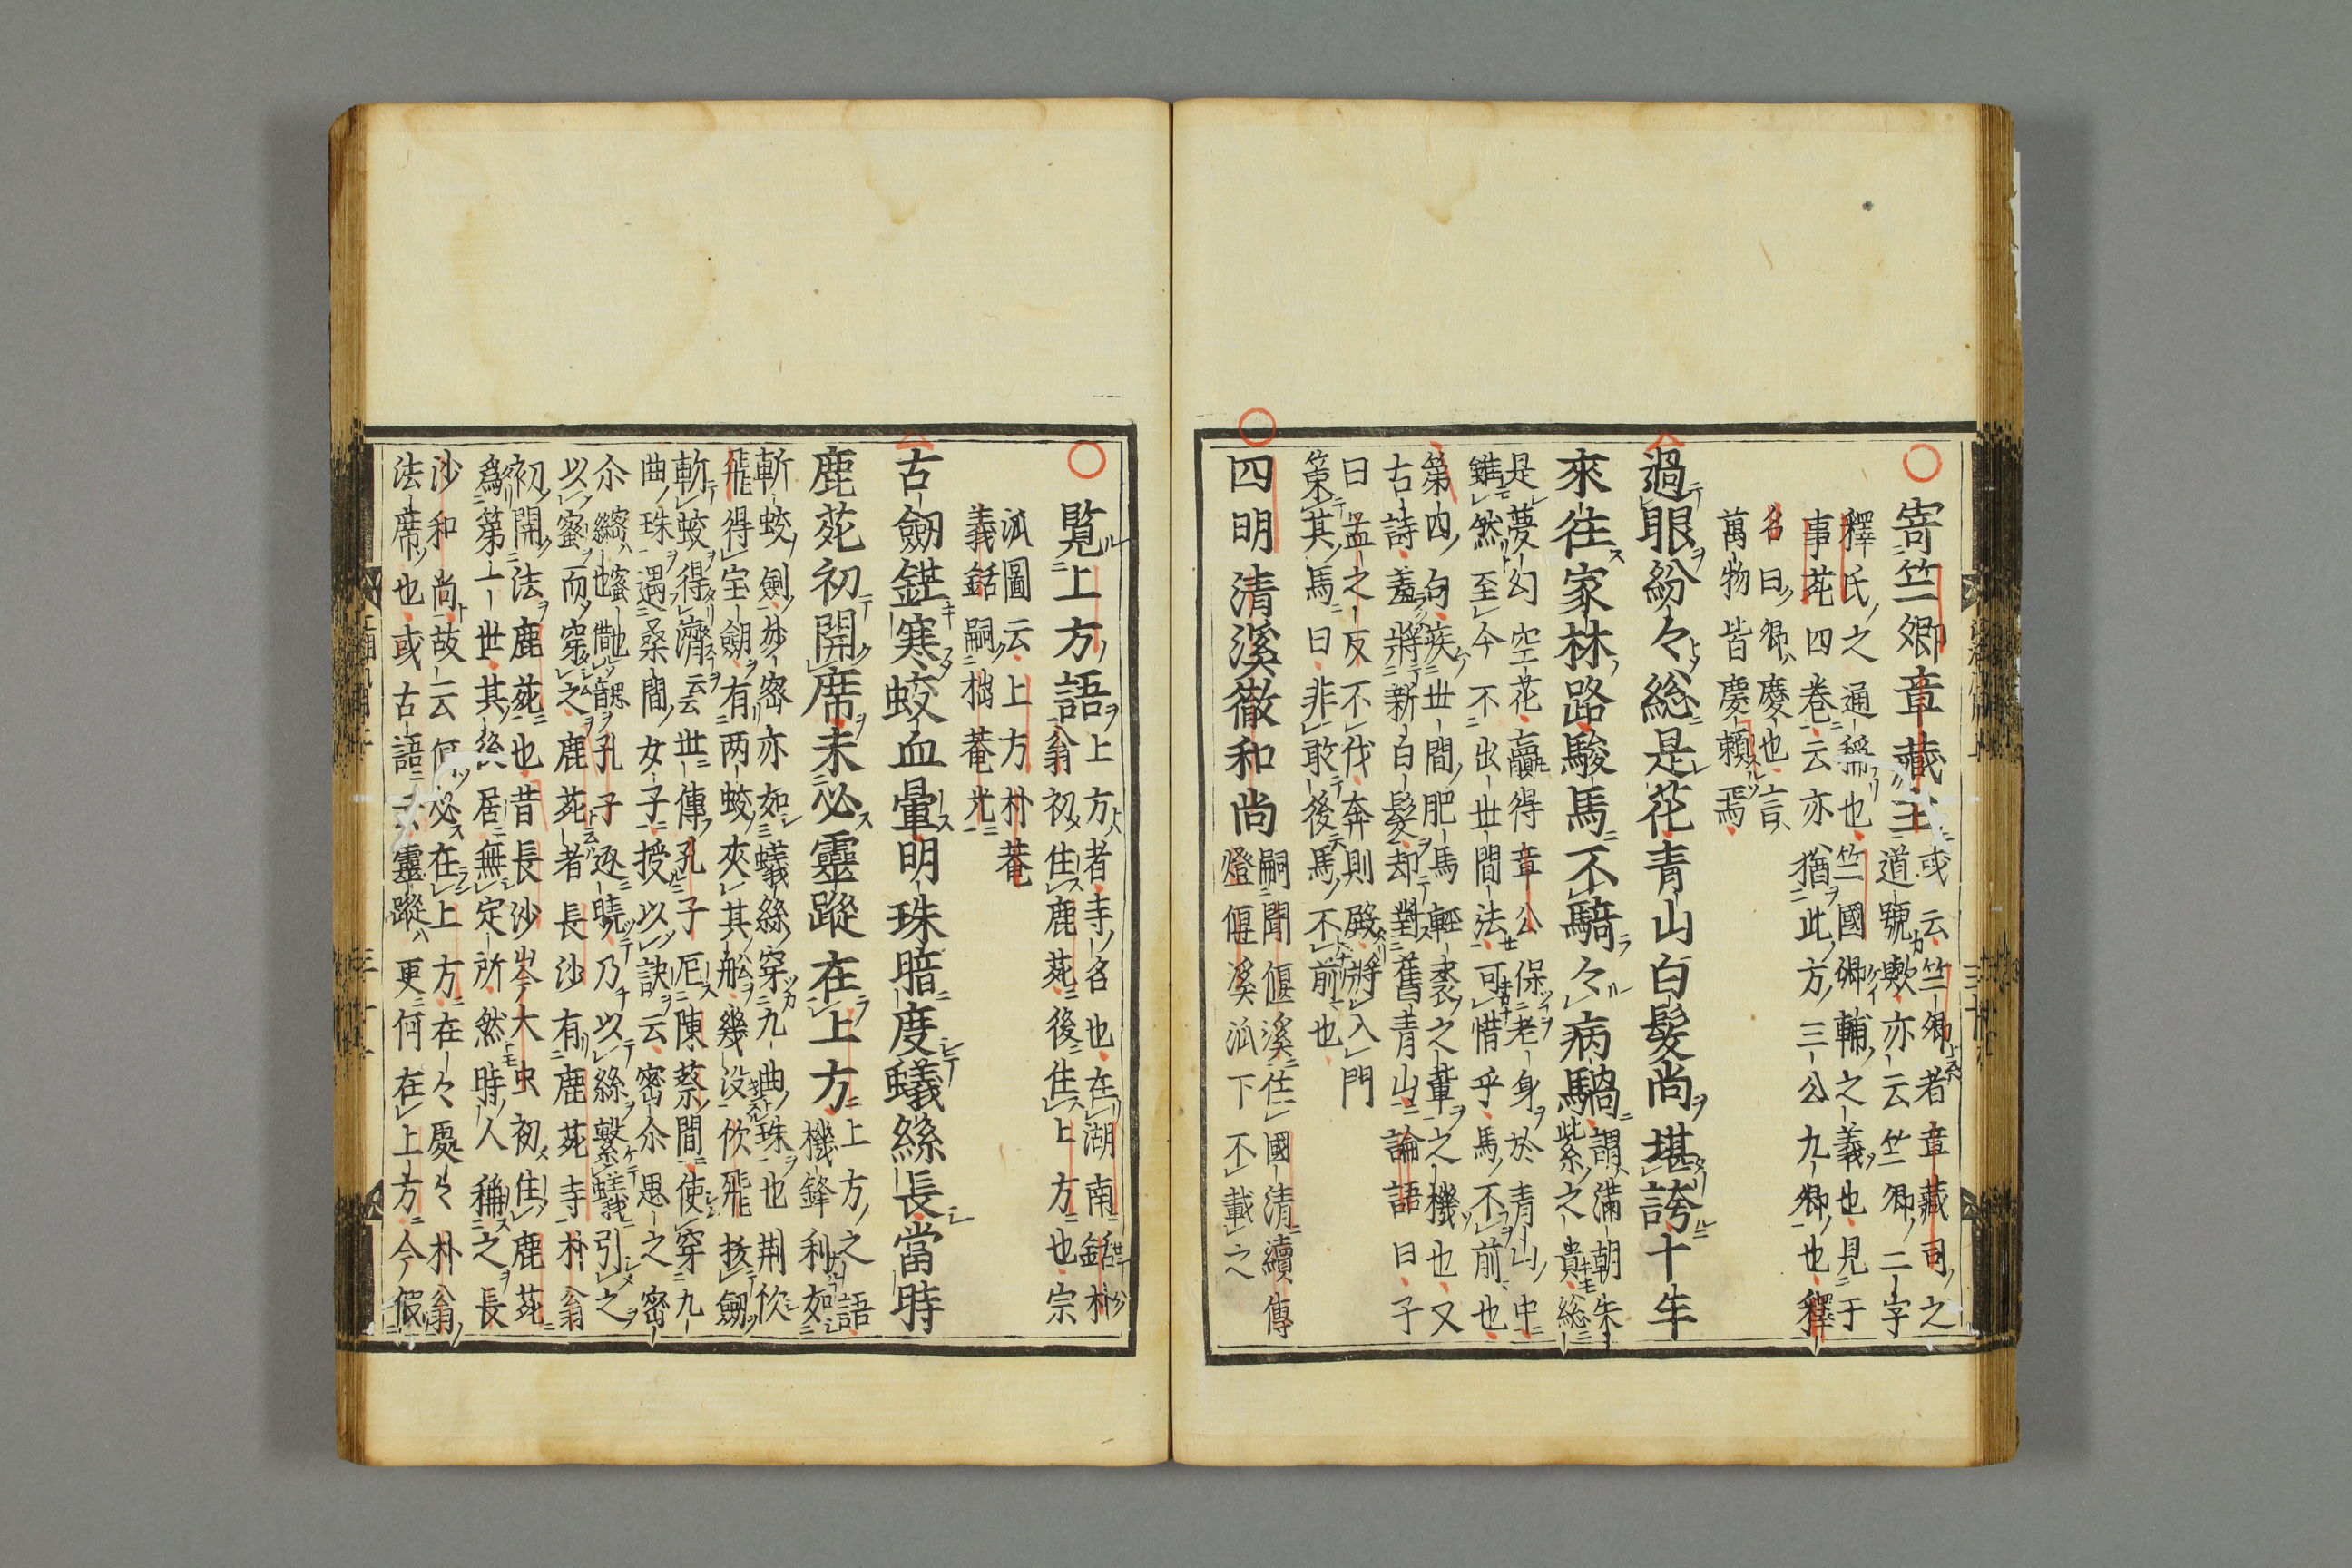 寄竺卿章藏主
或云竺卿者章藏司之
道號歟亦云竺卿二字
釋氏之通稱也竺國卿輔之義也見于
事苑四卷云亦猶此方三公九卿也釋
名曰卿慶也言
萬物皆慶賴焉
過眼紛々総是花青山白髮尚堪誇十年
來往家林路駿馬不騎々病騧
謂滿朝朱
紫之貴総
是夢幻空花贏得章公保老身於青山中
雖然至今不出世間法可惜乎馬不前也
第内句蔟世間肥馬輕裘之輩之機也又
古詩羞將新白髮却對舊青山論語曰子
曰孟之反不伐奔則殿將入門
策其馬曰非敢後馬不前也
四明清溪徹和尚
嗣聞偃溪住國清續傳
燈偃溪泒下不載之
覧上方語
上方者寺名也在湖南銛朴
翁初住鹿苑後住上方也宗
泒圖云上方朴菴
義銛嗣拙菴光
古劒鋩寒蛟血暈明珠暗度蟻絲長當時
鹿苑初開席未必靈蹤在上方
上方之語
機鋒利如
斬蛟劍妙密亦如蟻絲穿九曲珠也荆佽
飛得宝劒有两蛟夾其舩幾没佽飛抜劒
斬蛟得濟云世傳孔子厄陳蔡間使穿九
曲珠遇桑間女子授以訣云密尒思之密
以蜜而穿之鹿苑者長沙有鹿苑寺朴翁
初開法鹿苑也昔長沙岑大虫初住鹿苑
爲第一世其後居無定所然時人稱之長
沙和尚故云何必在上方在々處々朴翁
法席也或古語云靈蹤更何在上方今假